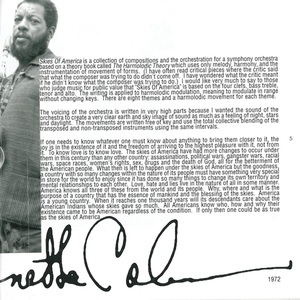 Skies Of America is a collection of compositions and the orchestration for a symphony orchestra
based on a theory book called The Harmolodic Theory which uses only melody, harmony, and the
instrumentation of movement of forms. (I have often read critical pieces where the critic said
that what the composer was trying to do didn't come off. I have wondered what the critic meant
if he didn't know what the composer was trying to do.) I would like very much to say to those
who judge music for public value that "Skies Of America" is based on the four clefs, bass treble,
tenor and alto. The writing is applied to harmolodic modulation, meaning to modulate in range
without changing keys. There are eight themes and a harmolodic movement for each theme.
The voicing of the orchestra is written in very high parts because I wanted the sound of the
orchestra to create a very clear earth and sky vision of sound as much as a feeling of night, stars
and daylight. The movements are written free of key and use the total collective blending of the
transposed and non-transposed instruments using the same intervals.
If one needs to know whatever one must know about anything to bring them closer to it, the
joy is in the existence of it and the freedom of arriving to the highest pleasure with it, not from
it. To know love is to know love. The skies of America have had more changes to occur under
them in this century than any other country: assassinations, political wars, gangster wars, racial
wars, space races, women's rights, sex, drugs and the death of God, all for the betterment of
the American people. One doesn't have to judge the future, past or the skies but the goodness.
a country with so many changes within the nature of its people must have something very special
in store for the world to enjoy since it has done so many things to change its own territory and
mental relationships to each other. Love, hate and lies live in the nature of all in some manner.
America knows all three of these from the world and its people. Why, where and what is the
purpose of a country that has the essence of mankind and the blessing of the skies. America
is a young country. When it reaches one thousand years will its descendants care about the
American Indians whose skies gave so much. All Americans know who, how and why their
existence came to be American regardless of the condition. If only then one could be as true
as the skies of America.
5
1972